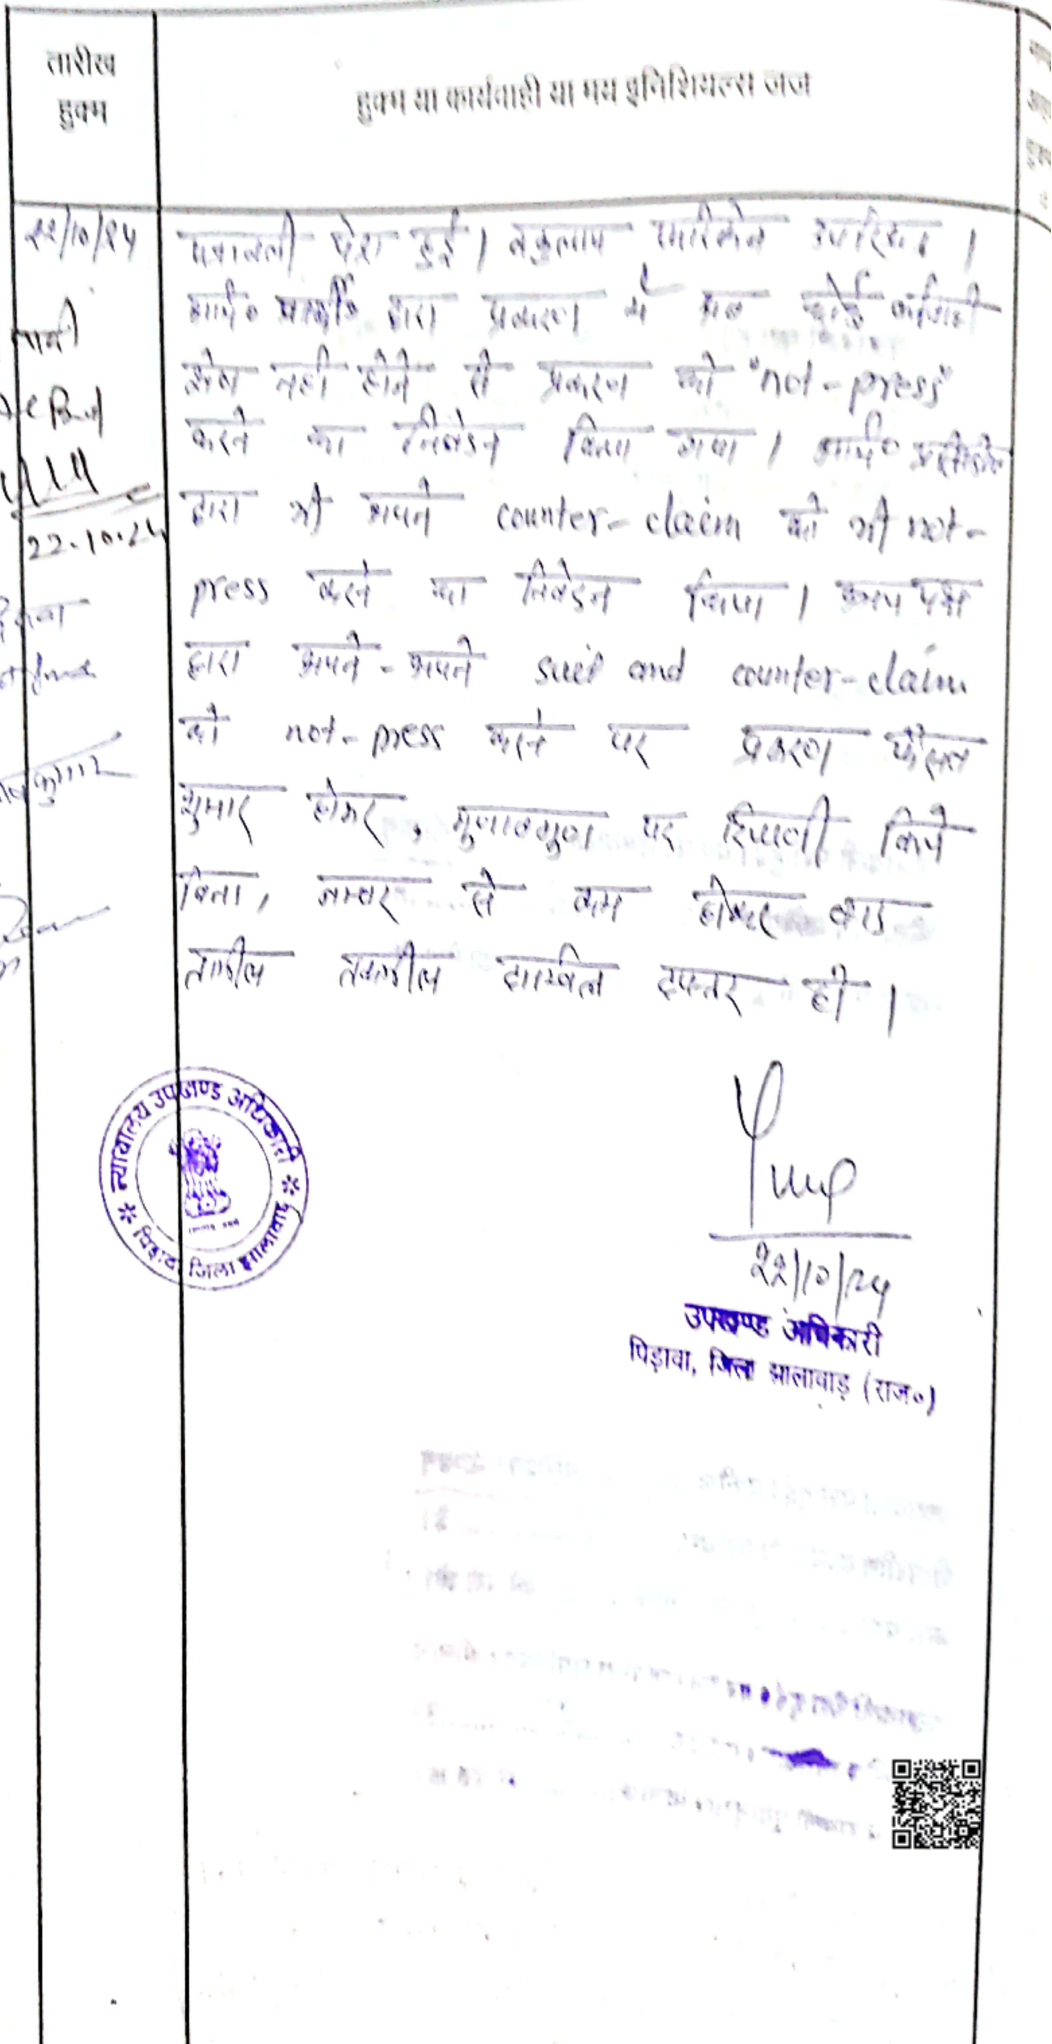 तारीख
हुक्म
हुक्म या कार्यवाही या मय इनिशियल्स जज
२२/१०/२५
पत्रावली पेश हुई। वकुलाय फरिकेन उपस्थित।
प्रार्थी द्वारा प्रकरण में अब कोई कार्यवाही
शेष नहीं होने से प्रकरण को "not-press"
करने का निवेदन किया गया।
द्वारा भी अपने counter-claim को भी not-
press करने का निवेदन किया। उभय पक्ष
द्वारा अपने-अपने suit and counter-claim
को not-press करने पर प्रकरण फैसल
शुमार होकर, गुणावगुण पर टिप्पणी किये
बिना, नम्बर से कम होकर बाद
तामील तकमील दाखिल दफ्तर हो।
22.10.25
न्यायालय उपखण्ड अधिकारी
पिड़ावा जिला झालावाड़
२२/१०/२५
उपखण्ड अधिकारी
पिड़ावा, जिला झालावाड़ (राज०)